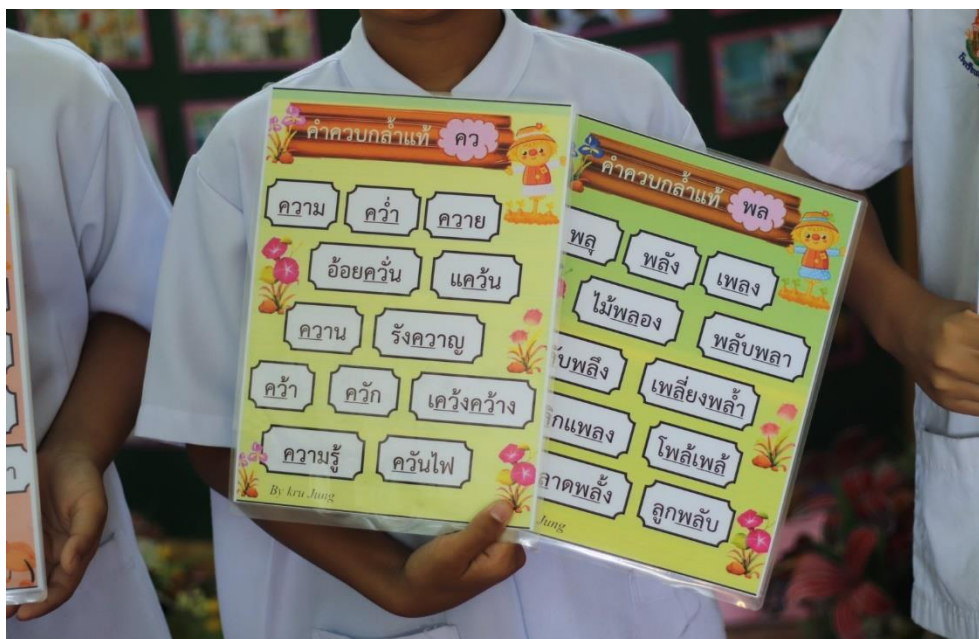 คำควบกล้ำแท้ คว
ความ คว่ำ ควาย
อ้อยควั่น แคว้น
ควาน รังควาญ
คว้า ควัก เคว้งคว้าง
ความรู้ ควันไฟ
By kru Jung
คำควบกล้ำแท้ พล
พลุ พลัง เพลง
ไม้พลอง พลับพลา
เพลี่ยงพล้ำ
โพล้เพล้
ลูกพลับ
Jung